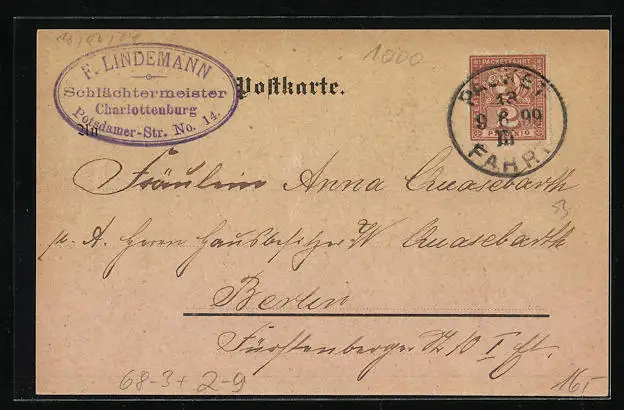 F. LINDEMANN
Schlächtermeister
Charlottenburg
Potsdamer-Str. No. 14.
Postkarte.
An
1000
PACKETFAHRT
2
PFENNIG
PACKET
FAHRT
9 6 99
III
Fräulein Anna Quasebarth
p. A. Herrn Hausbesitzer W Quasebarth
Berlin
Fürstenberger Str 10 I
68-3+2-9
16,-